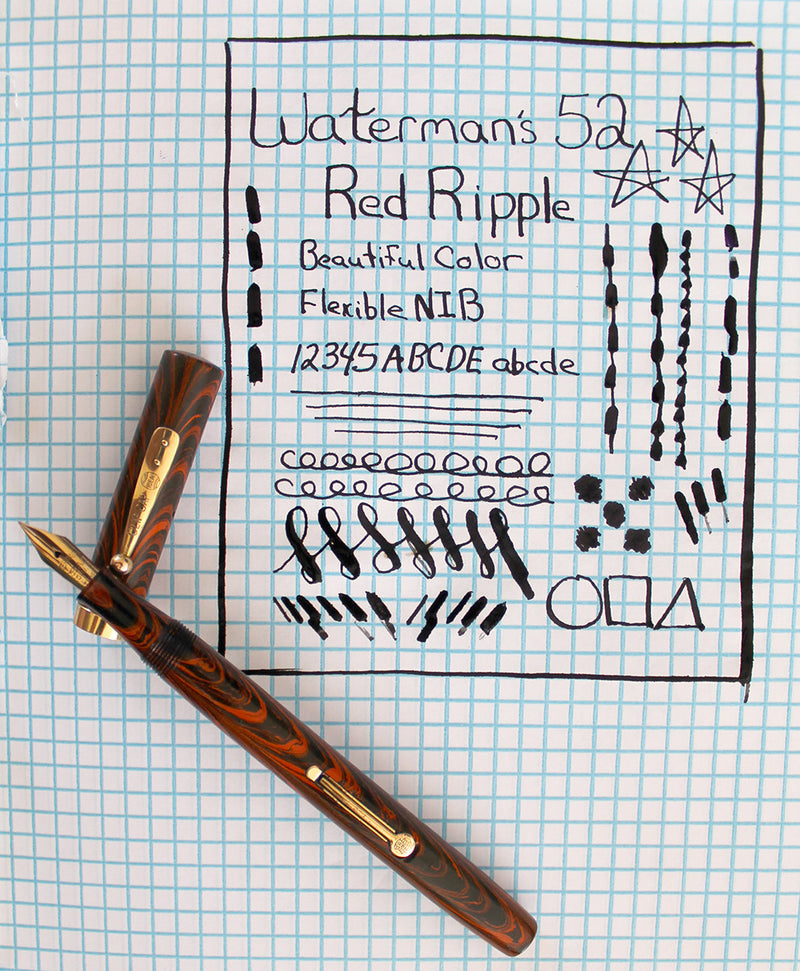 Waterman's 52
Red Ripple
Beautiful Color
Flexible NIB
12345 ABCDE abcde